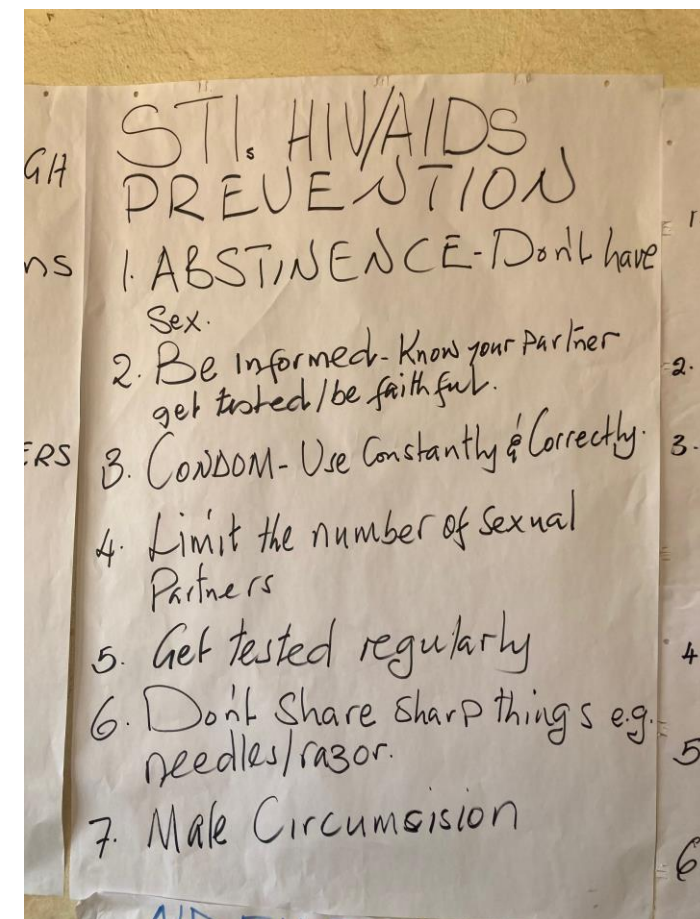 STIs HIV/AIDS
PREVENTION
1. ABSTINENCE - Don't have
Sex.
2. Be informed - Know your Partner
get tested/be faithful.
3. CONDOM - Use Constantly & Correctly.
4. Limit the number of sexual
Partners
5. Get tested regularly
6. Don't Share sharp things e.g.
needles/razor.
7. Male Circumcision
GH
ns
ERS
1
2.
3.
4
5
6